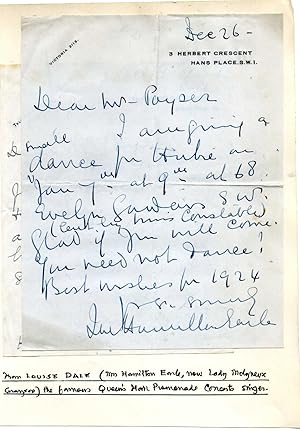 Dec 26 -
VICTORIA
3 HERBERT CRESCENT
HANS PLACE. S.W.1.
Dear Mr Payser
I am giving a
small
dance for Hubie on
"Jan 7" at 9 at 68
Evelyn Gardens S.W.
(lent by Constable)
Glad if you will come.
You need not dance!
Best wishes for 1924
Hamilton Earle
from LOUISE DALE (Mrs Hamilton Earle, now Lady
the famous Queen's Hall Promenade Concerts singer.